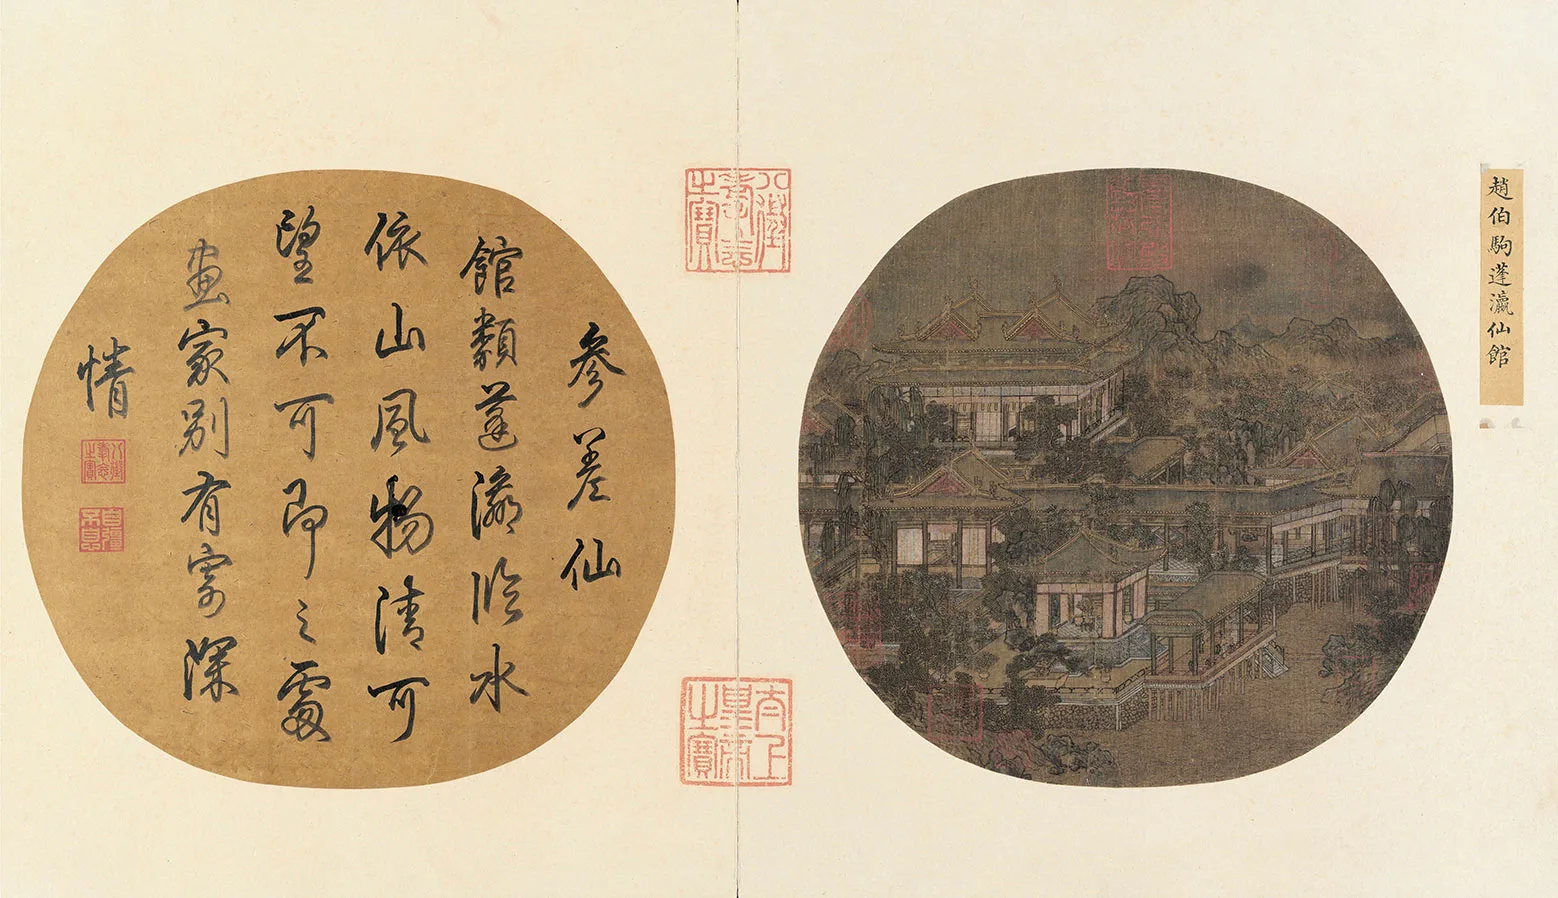 趙伯駒蓬瀛仙館
參差仙
館類蓬瀛臨水
依山風物清可
望不可即之處
畫家別有寄深
情
八徵耄念之寶
太上皇帝之寶
八徵耄念之寶
自彊不息